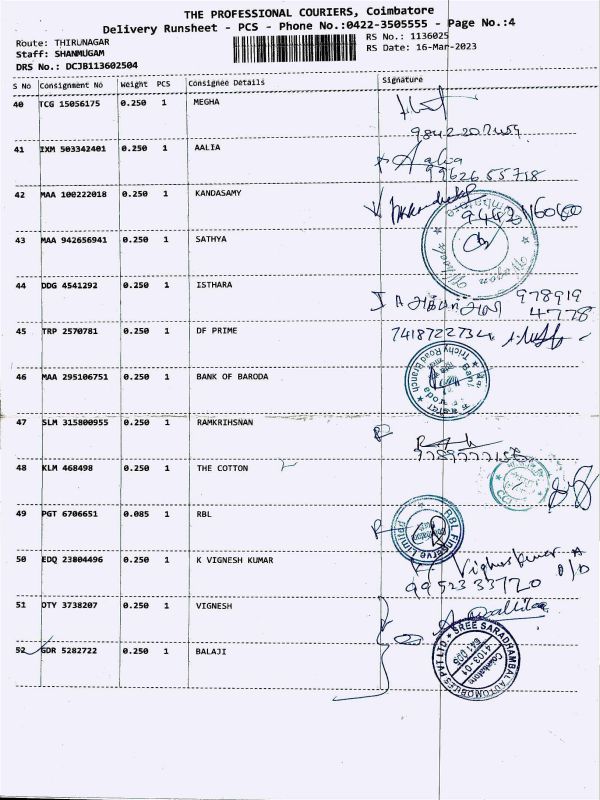 THE PROFESSIONAL COURIERS, Coimbatore
Delivery Runsheet - PCS - Phone No.:0422-3505555 - Page No.:4
Route: THIRUNAGAR
RS No.: 1136025
Staff: SHANMUGAM
RS Date: 16-Mar-2023
DRS No.: DCJB113602504
S No Consignment No Weight PCS Consignee Details Signature
40 TCG 15056175 0.250 1 MEGHA
41 IXM 503342401 0.250 1 AALIA Aalia
99626 55718
42 MAA 100222018 0.250 1 KANDASAMY
43 MAA 942656941 0.250 1 SATHYA
44 DDG 4541292 0.250 1 ISTHARA 978919
4778
45 TRP 2570781 0.250 1 DF PRIME 7418722734
46 MAA 295106751 0.250 1 BANK OF BARODA
Trichy Road Branch
47 SLM 315800955 0.250 1 RAMKRIHSNAN
48 KLM 468498 0.250 1 THE COTTON
49 PGT 6706651 0.085 1 RBL
RBL Finserve Limited
50 EDQ 23804496 0.250 1 K VIGNESH KUMAR Vigneshkumar A
9952333720
51 DTY 3738207 0.250 1 VIGNESH
52 GDR 5282722 0.250 1 BALAJI
SREE SARADHAMBAL AUTOMOBILES PVT LTD
4103-01
641 005
Coimbatore